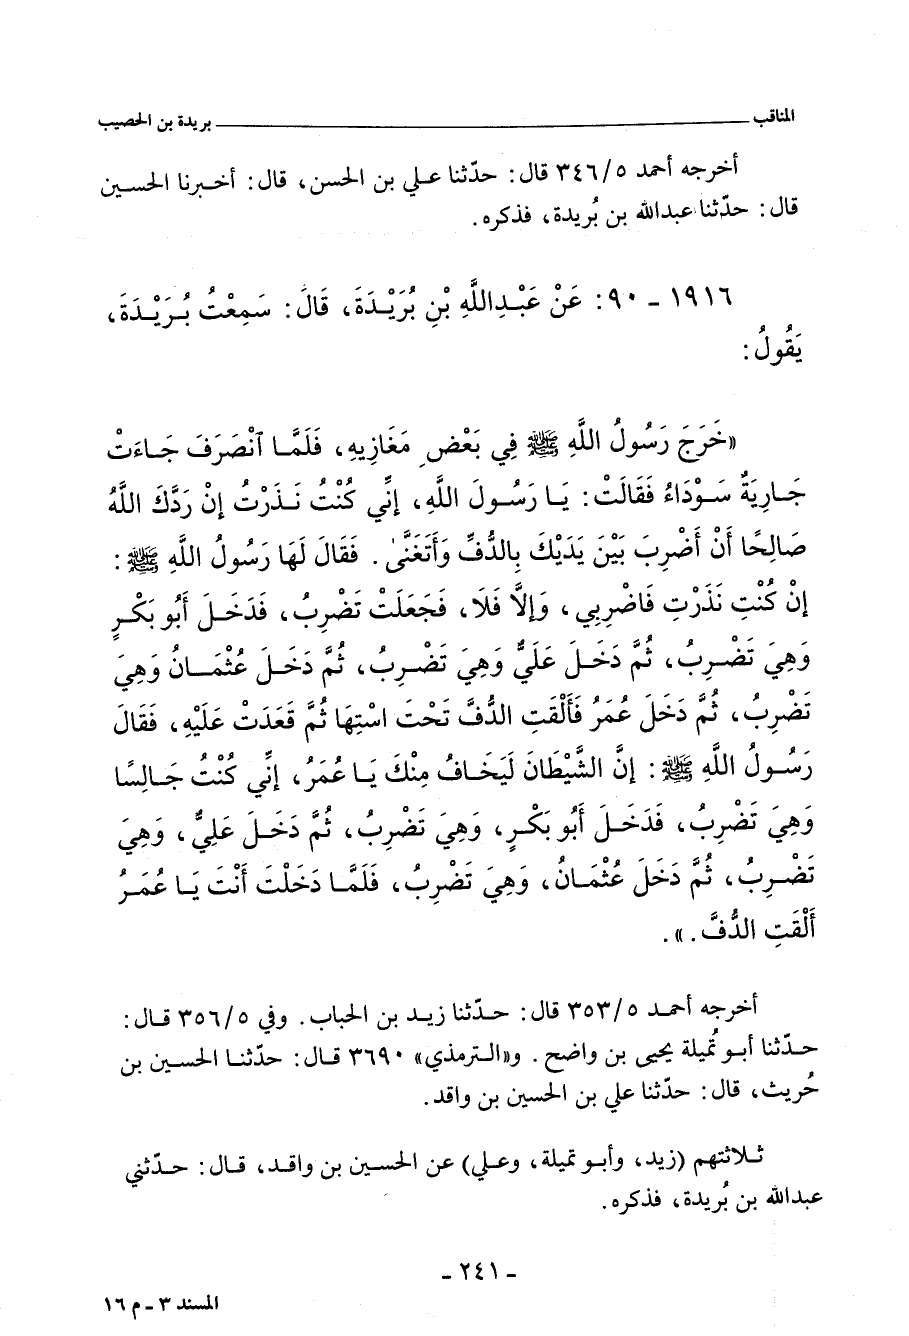 المناقب ــــــــــــــــــــــــــــــــــــــــ بريدة بن الحصيب
أخرجه أحمد ٣٤٦/٥ قال: حدّثنا علي بن الحسن، قال: أخبرنا الحسين
قال: حدّثنا عبدالله بن بُريدة، فذكره.
١٩١٦ - ٩٠: عَنْ عَبْدِاللَّهِ بْنِ بُرَيْدَةَ، قَالَ: سَمِعْتُ بُرَيْدَةَ،
يَقُولُ:
«خَرَجَ رَسُولُ اللَّهِ ﷺ فِي بَعْضِ مَغَازِيهِ، فَلَمَّا ٱنْصَرَفَ جَاءَتْ
جَارِيَةٌ سَوْدَاءُ فَقَالَتْ: يَا رَسُولَ اللَّهِ، إِنِّي كُنْتُ نَذَرْتُ إِنْ رَدَّكَ اللَّهُ
صَالِحًا أَنْ أَضْرِبَ بَيْنَ يَدَيْكَ بِالدُّفِّ وَأَتَغَنَّى. فَقَالَ لَهَا رَسُولُ اللَّهِ ﷺ:
إِنْ كُنْتِ نَذَرْتِ فَاضْرِبِي، وَإِلَّا فَلَا، فَجَعَلَتْ تَضْرِبُ، فَدَخَلَ أَبُو بَكْرٍ
وَهِيَ تَضْرِبُ، ثُمَّ دَخَلَ عَلَيٌّ وَهِيَ تَضْرِبُ، ثُمَّ دَخَلَ عُثْمَانُ وَهِيَ
تَضْرِبُ، ثُمَّ دَخَلَ عُمَرُ فَأَلْقَتِ الدُّفَّ تَحْتَ اسْتِهَا ثُمَّ قَعَدَتْ عَلَيْهِ، فَقَالَ
رَسُولُ اللَّهِ ﷺ: إِنَّ الشَّيْطَانَ لَيَخَافُ مِنْكَ يَا عُمَرُ، إِنِّي كُنْتُ جَالِسًا
وَهِيَ تَضْرِبُ، فَدَخَلَ أَبُو بَكْرٍ، وَهِيَ تَضْرِبُ، ثُمَّ دَخَلَ عَلِيٌّ، وَهِيَ
تَضْرِبُ، ثُمَّ دَخَلَ عُثْمَانُ، وَهِيَ تَضْرِبُ، فَلَمَّا دَخَلْتَ أَنْتَ يَا عُمَرُ
أَلْقَتِ الدُّفَّ.».
أخرجه أحمد ٣٥٣/٥ قال: حدّثنا زيد بن الحباب. وفي ٣٥٦/٥ قال:
حدّثنا أبو تُميلة يحيى بن واضح. و«الترمذي» ٣٦٩٠ قال: حدّثنا الحسين بن
حُريث، قال: حدّثنا علي بن الحسين بن واقد.
ثلاثتهم (زيد، وأبو تميلة، وعلي) عن الحسين بن واقد، قال: حدّثني
عبدالله بن بُريدة، فذكره.
- ٢٤١ -
المسند ٣ - م ١٦